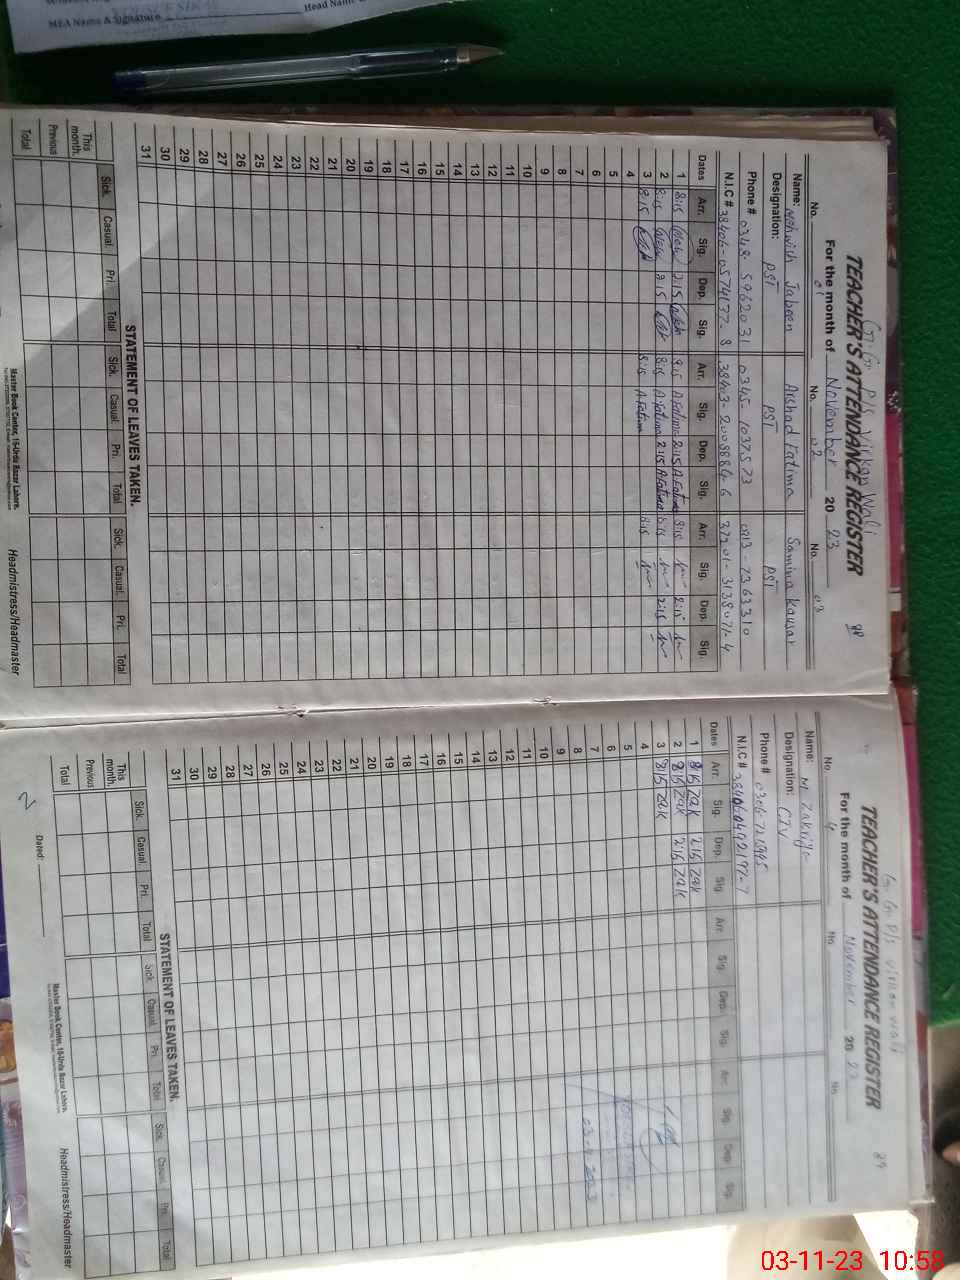 MEA Name & Signature
Head Name &
G.G. P/S Virkan Wali
88
TEACHER'S ATTENDANCE REGISTER
For the month of November 20 23
No. 01 No. 02 No. 03
Name: Mehwish Jabeen Arshad Fatima Samina Kausar
Designation: PST PST PST
Phone # 0348 5962031 0345-1037573 0313-7363310
N.I.C #
Dates Arr. Sig. Dep. Sig. Arr. Sig. Dep. Sig. Arr. Sig. Dep. Sig.
1 8:15 2:15 8:15 A.Fatima 2:15 A.Fatima 8:15 2:15
2 8:15 2:15 8:15 A.Fatima 2:15 A.Fatima 8:15 2:15
3 8:15 8:15 A.Fatima 8:15
4
5
6
7
8
9
10
11
12
13
14
15
16
17
18
19
20
21
22
23
24
25
26
27
28
29
30
31
STATEMENT OF LEAVES TAKEN.
Sick. Casual. Pri. Total Sick. Casual. Pri. Total Sick. Casual. Pri. Total
This month.
Previous
Total
Master Book Center, 15-Urdu Bazar Lahore.
Headmistress/Headmaster
G. G. P/S Virkan Wali
89
TEACHER'S ATTENDANCE REGISTER
For the month of November 20 23
No. 4 No. No.
Name: M. Zakriya
Designation: C IV
Phone #
N.I.C #
Dates Arr. Sig. Dep. Sig. Arr. Sig. Dep. Sig. Arr. Sig. Dep. Sig.
1 815 Zak 215 Zak
2 815 Zak 215 Zak
3 815 Zak
4
5
6
7
8
9
10
11
12
13
14
15
16
17
18
19
20
21
22
23
24
25
26
27
28
29
30
31
STATEMENT OF LEAVES TAKEN.
Sick. Casual. Pri. Total Sick. Casual. Pri. Total Sick. Casual. Pri. Total
This month.
Previous
Total
Dated:
Master Book Center, 15-Urdu Bazar Lahore.
Headmistress/Headmaster
03-11-23 10:58